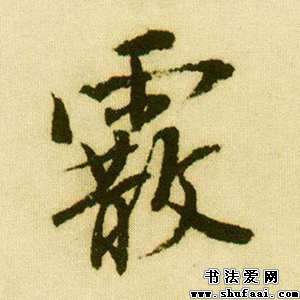 霰
书法爱网
www.shufaai.com